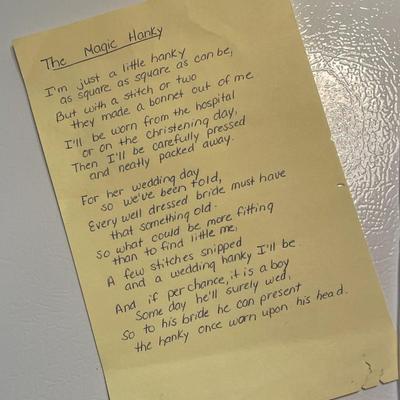 The Magic Hanky
I'm just a little hanky
as square as square as can be,
But with a stitch or two
they made a bonnet out of me
I'll be worn from the hospital
or on the christening day,
Then I'll be carefully pressed
and neatly packed away.
For her wedding day
so we've been told,
Every well dressed bride must have
that something old.
So what could be more fitting
than to find little me,
A few stitches snipped
and a wedding hanky I'll be.
And if per chance, it is a boy
Some day he'll surely wed,
So to his bride he can present
the hanky once worn upon his head.